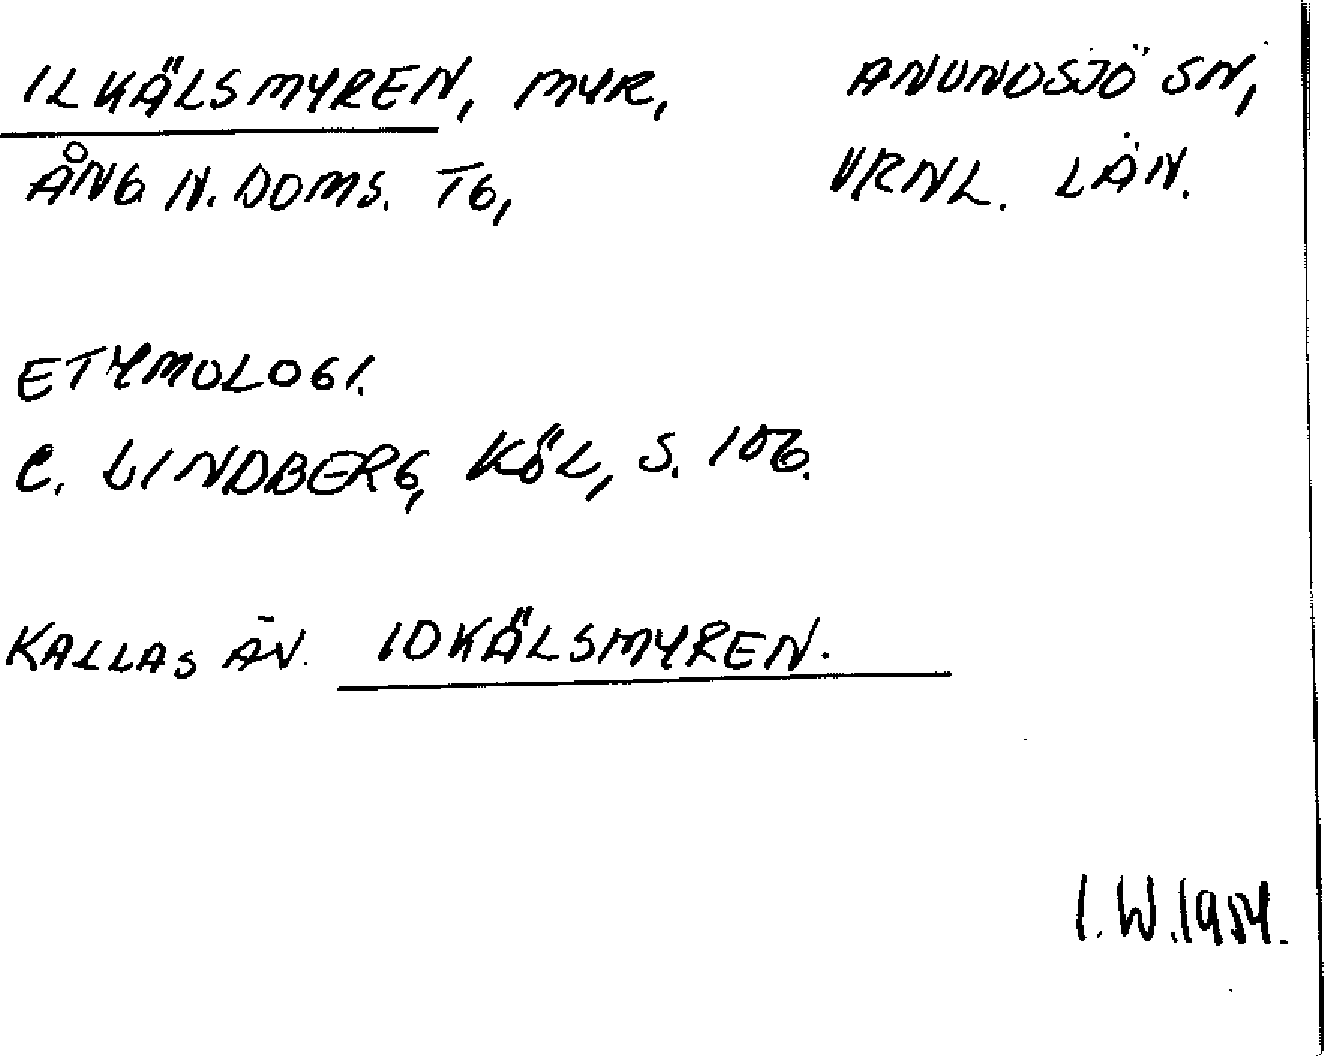 ILKÄLSMYREN, MYR, ANUNDSJÖ SN,
ÅNG. N. DOMS. TG, VRNL. LÄN.
ETYMOLOGI.
C. LINDBERG, KÖL, S. 106.
KALLAS ÄV. IDKÄLSMYREN.
I. W. 1954.